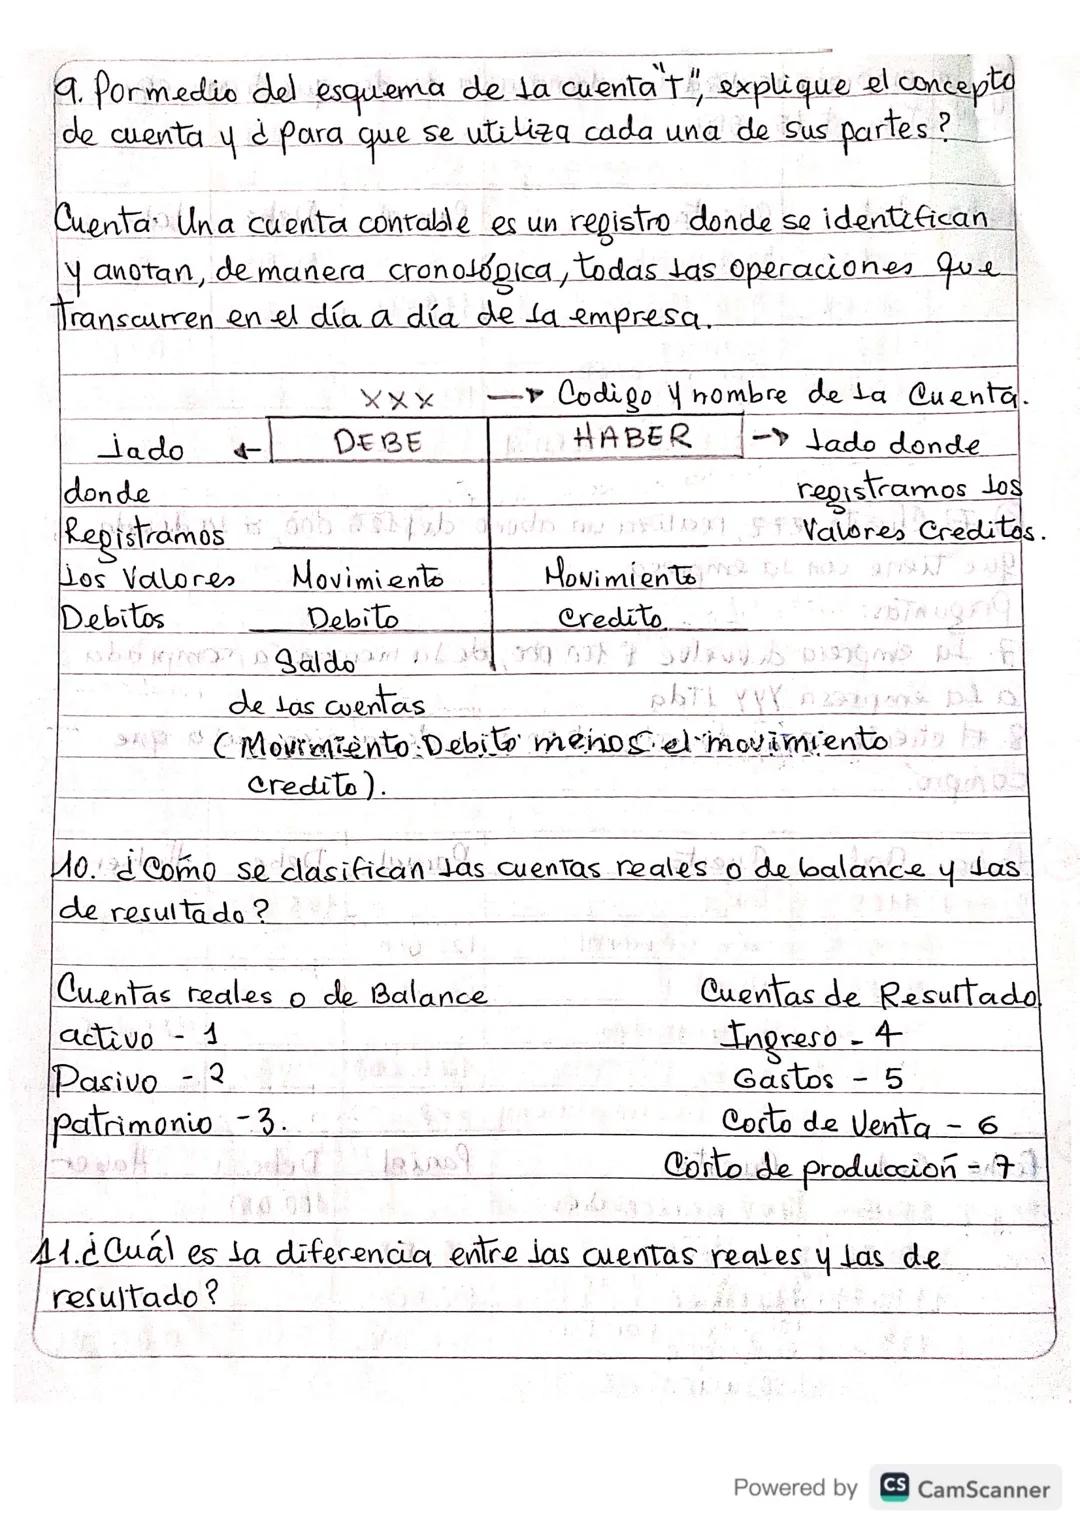 9. Por medio del esquema de la cuenta "T", explique el concepto
de cuenta y ¿ Para que se utiliza cada una de sus partes?
Cuenta: Una cuenta contable es un registro donde se identifican
y anotan, de manera cronológica, todas las operaciones que
Transcurren en el día a día de la empresa.
XXX → Codigo y nombre de la Cuenta.
lado ← DEBE HABER → lado donde
donde registramos los
Registramos Valores Creditos.
los Valores Movimiento Movimiento
Debitos Debito credito
Saldo
de las cuentas
(Movimiento Debito menos el movimiento
credito).
10. ¿Como se clasifican las cuentas reales o de balance y las
de resultado?
Cuentas reales o de Balance Cuentas de Resultado
activo - 1 Ingreso - 4
Pasivo - 2 Gastos - 5
patrimonio - 3. Costo de Venta - 6
Costo de produccion - 7
11. ¿Cuál es la diferencia entre las cuentas reales y las de
resultado?
Powered by CS CamScanner